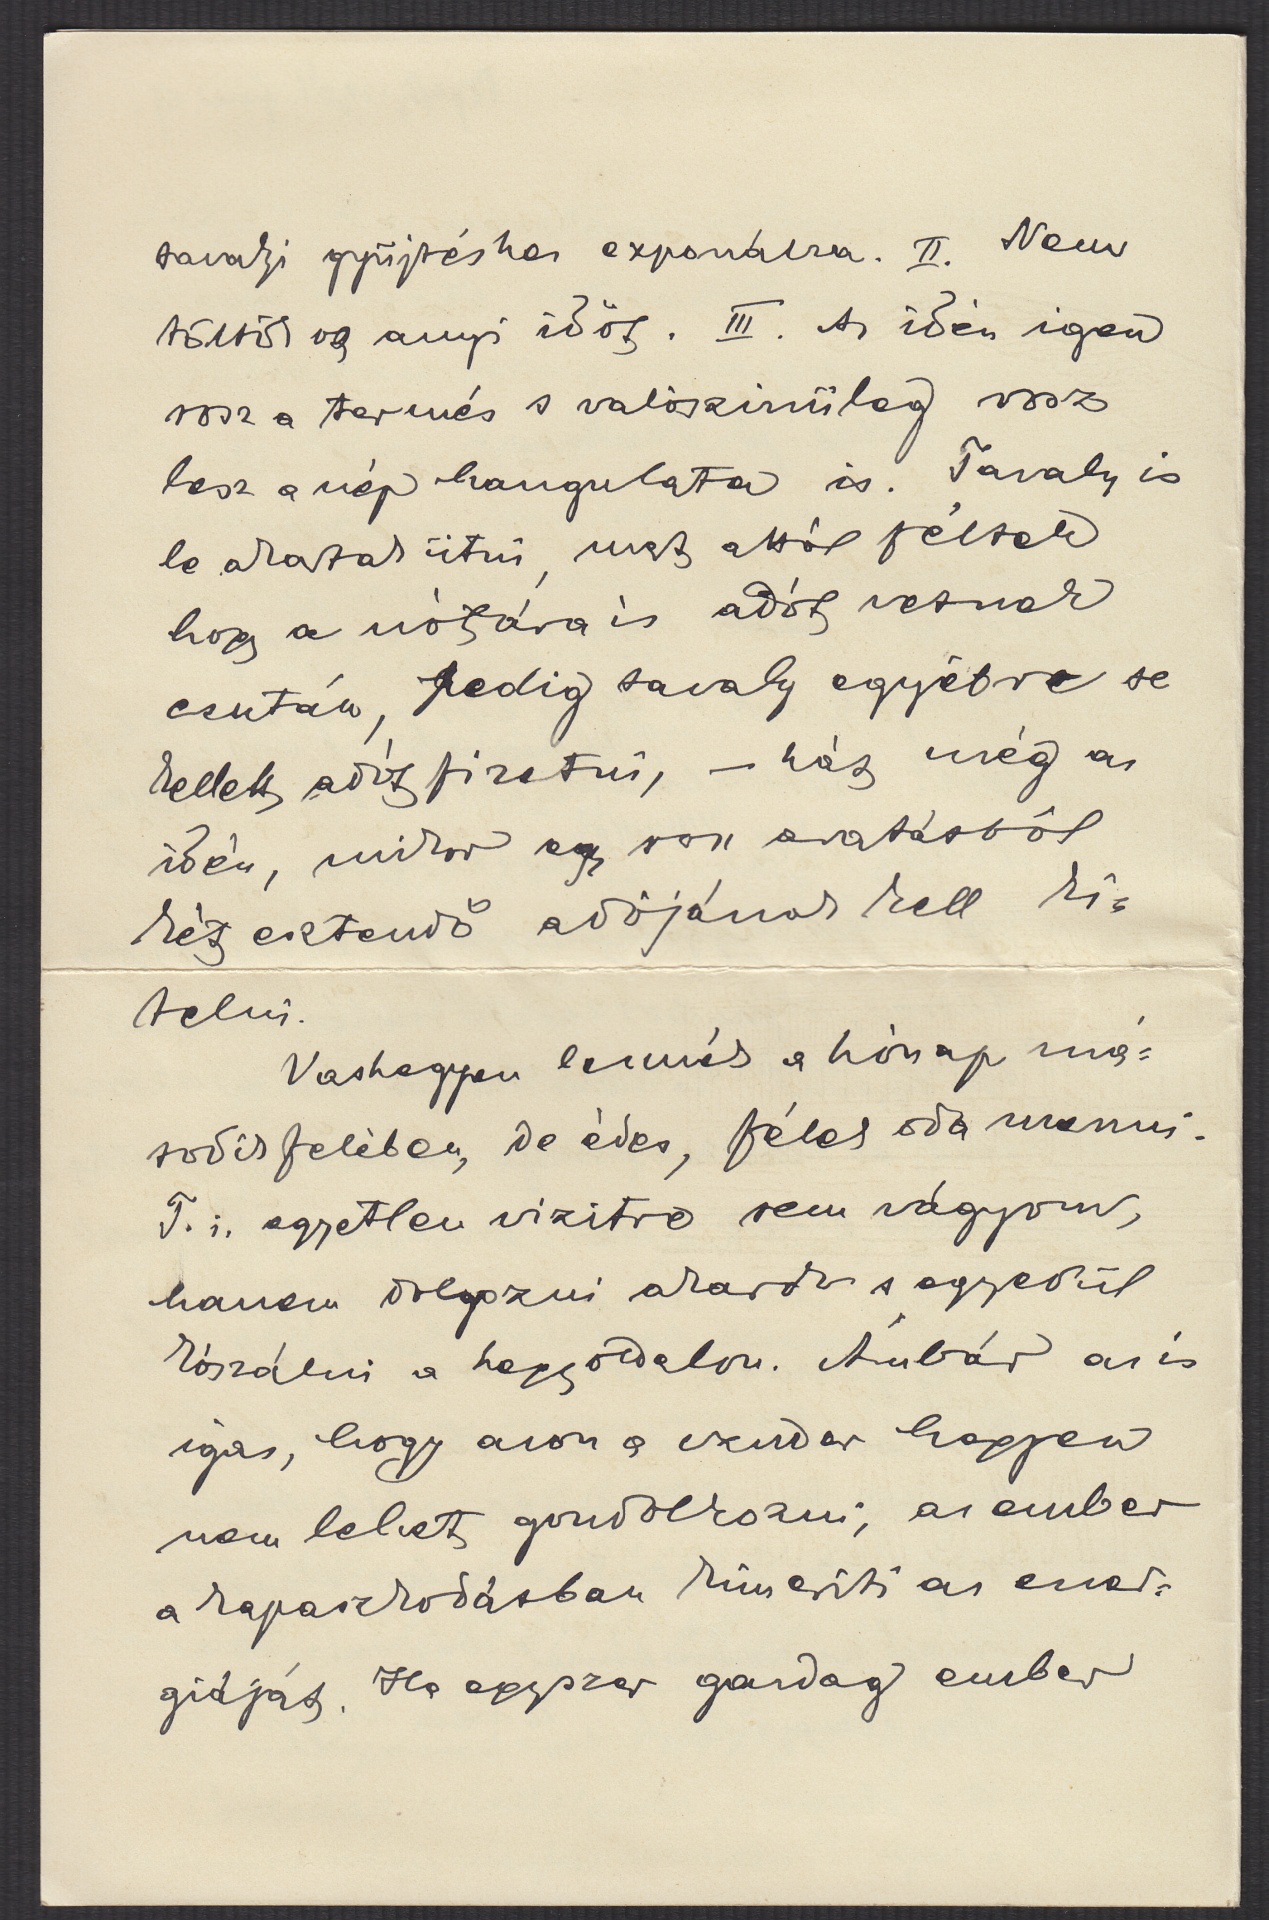 tavalyi gyüjtéshez exponálva. II. Nem
töltök og annyi időt. III. Az idén igen
rosz a termés s valószinüleg rosz
lesz a nép hangulata is. Tavaly is
le akartak ütni, mert attól féltek
hogy a nótájára is adót vetnek
ezután, pedig tavaly egyébre se
kellett adót fizetni, – hát még az
idén, mikor egy rosz aratásból
két esztendő adójának kell ki=
telni.
Vashegyen lennék a hónap má=
sodik felében, de édes, félek oda menni.
T. i. egyetlen vizitre sem vágyom,
hanem dolgozni akarok s egyedül
kószálni a hegyoldalon. Ámbár az is
igaz, hogy azon a hegyen
nem lehet gondolkozni, az ember
a kapaszkodásban kimeríti az ener=
giáját. Ha egyszer gazdag ember